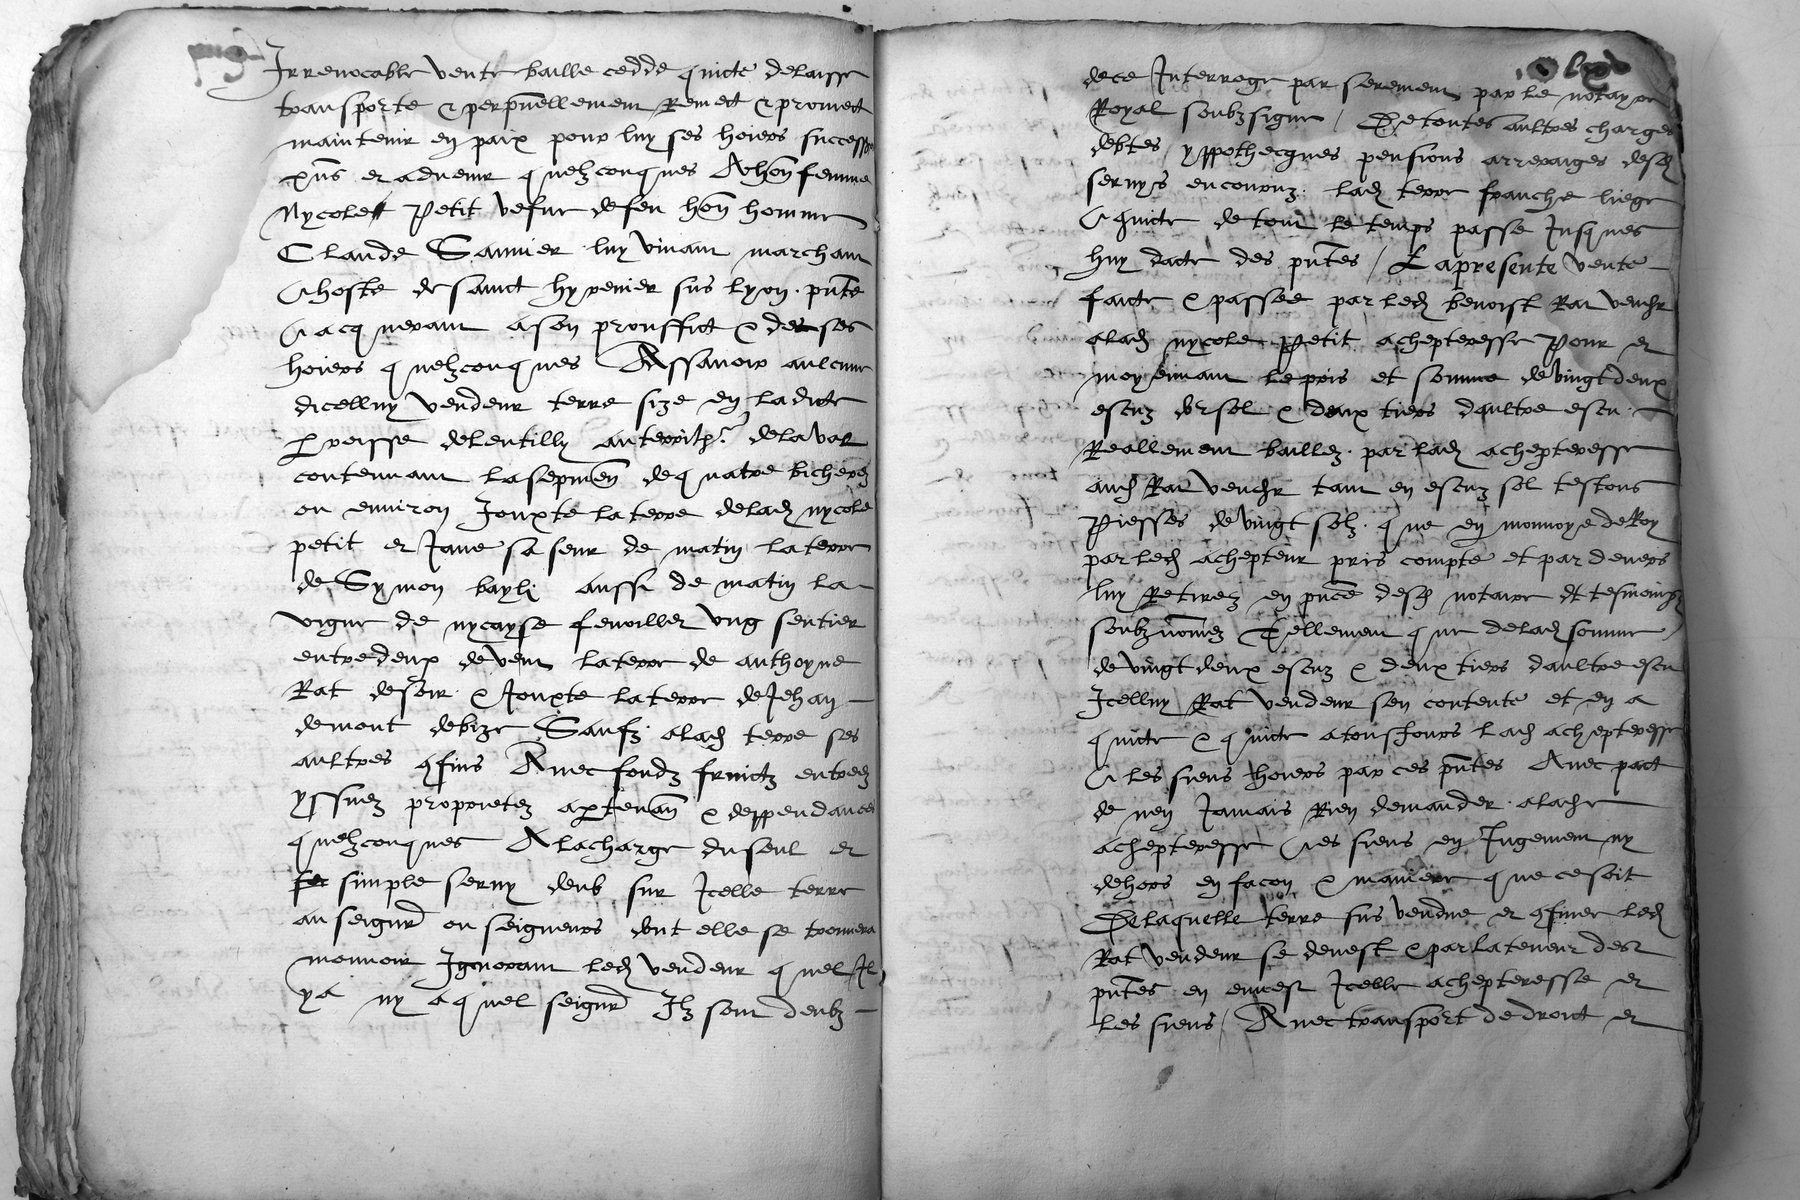 Irrevocable vente baille cedde quicte delaisse
transporte & perpetuellement Remect & promect
maintenir en paix pour luy ses hoiers success
pns et advenir quelzconques A hon femme
Nycole Petit vefue de feu hon homme
Claude Saunier luy vivant marchant
& hoste de sainct hyrenier sus lyon pnte
& acquerant a son prouffict & de ses
hoiers quelzconques Assavoir aulcune
dicelluy vendeur terre size en ladicte
parroisse de lentilly au territh.e de la val
contenant la sepmen de quatre bicherez
ou environ Jouxte la terre de lad nycole
petit et Jane sa seur de matin la terre
de Symon bayli aussi de matin la
vigne de nycayse fenoillet ung sentier
entredeux de vent la terre de anthoyne
Rat de soir & Jouxte la terre de Jehan
demont de bize Saufz a lad terre ses
aultres cfins Avec fondz fruictz entrees
yssuez proprietez apartenan & deppendances
quelzconques A la charge du seul et
simple servy deub sur Icelle terre
au seigneur ou seigneurs dont elle se trouvera
mouvoir Ignorant led vendeur quel Il
y a ny a quel seigneur Ilz sont deubz
de ce Interroge par serement par le notayre
Royal soubzsigne / De toutes aultres charges
debtes yppothecques pensions arreraiges desd
servys encouruz lad terre franche liege
& quicte de tout le temps passe Jusques
huy datte des pntes / La presente vente
faicte & passee par led benoist Rat vendr
a lad nycole Petit achepteresse Pour et
moyennant le pris et somme de vingt deux
escuz dor sol & deux tiers daultre escu
Reallement baillez par lad achepteresse
aud Rat vendr tant en escuz sol testons
Piesses de vingt solz que en monnoye de Roy
par led achepteur pris compte et par devers
luy Retirez en pnce desd notaire et tesmoingz
soubznomez Tellement que de lad somme
de vingt deux escuz & deux tiers daultre escu
Icelluy Rat vendeur sen contente et en a
quicte & quicte a tousjours lad achepteresse
& les siens hoiers par ces pntes Avec pact
de nen Jamais Rien demander a lade
achepteresse & es siens en Jugement ny
dehors en facon & maniere que ce soit
De laquelle terre sus vendue et cfinee led
Rat vendeur se devest & par la teneur des
pntes en envest Icelle achepteresse et
les siens / Avec transport de droict et